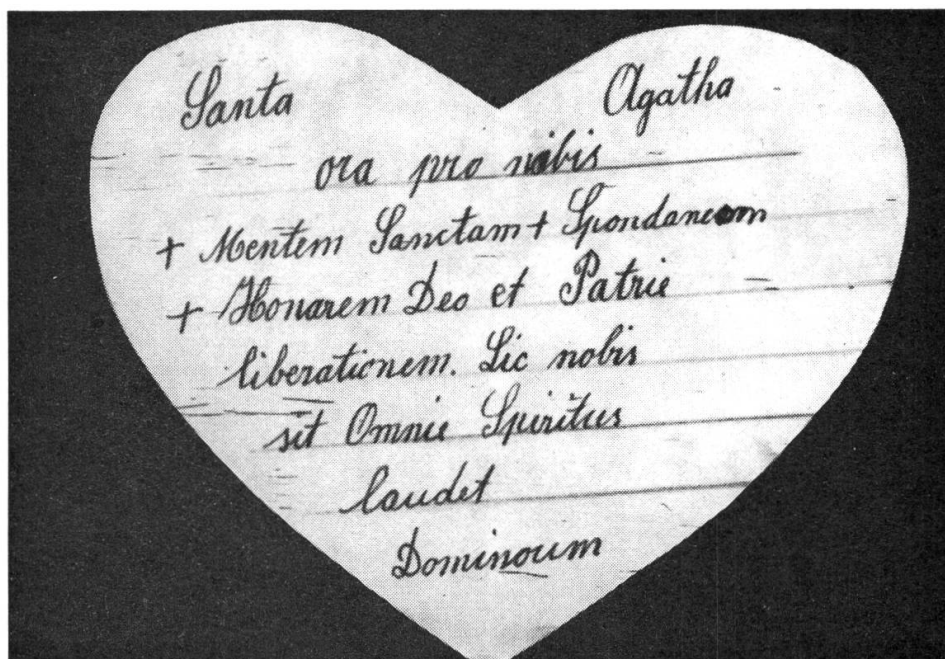 Santa Agatha
ora pro nobis
+ Mentem Sanctam + Spondaneom
+ Honarem Deo et Patrie
liberationem. Sic nobis
sit Omnie Spiritus
laudet
Dominoum